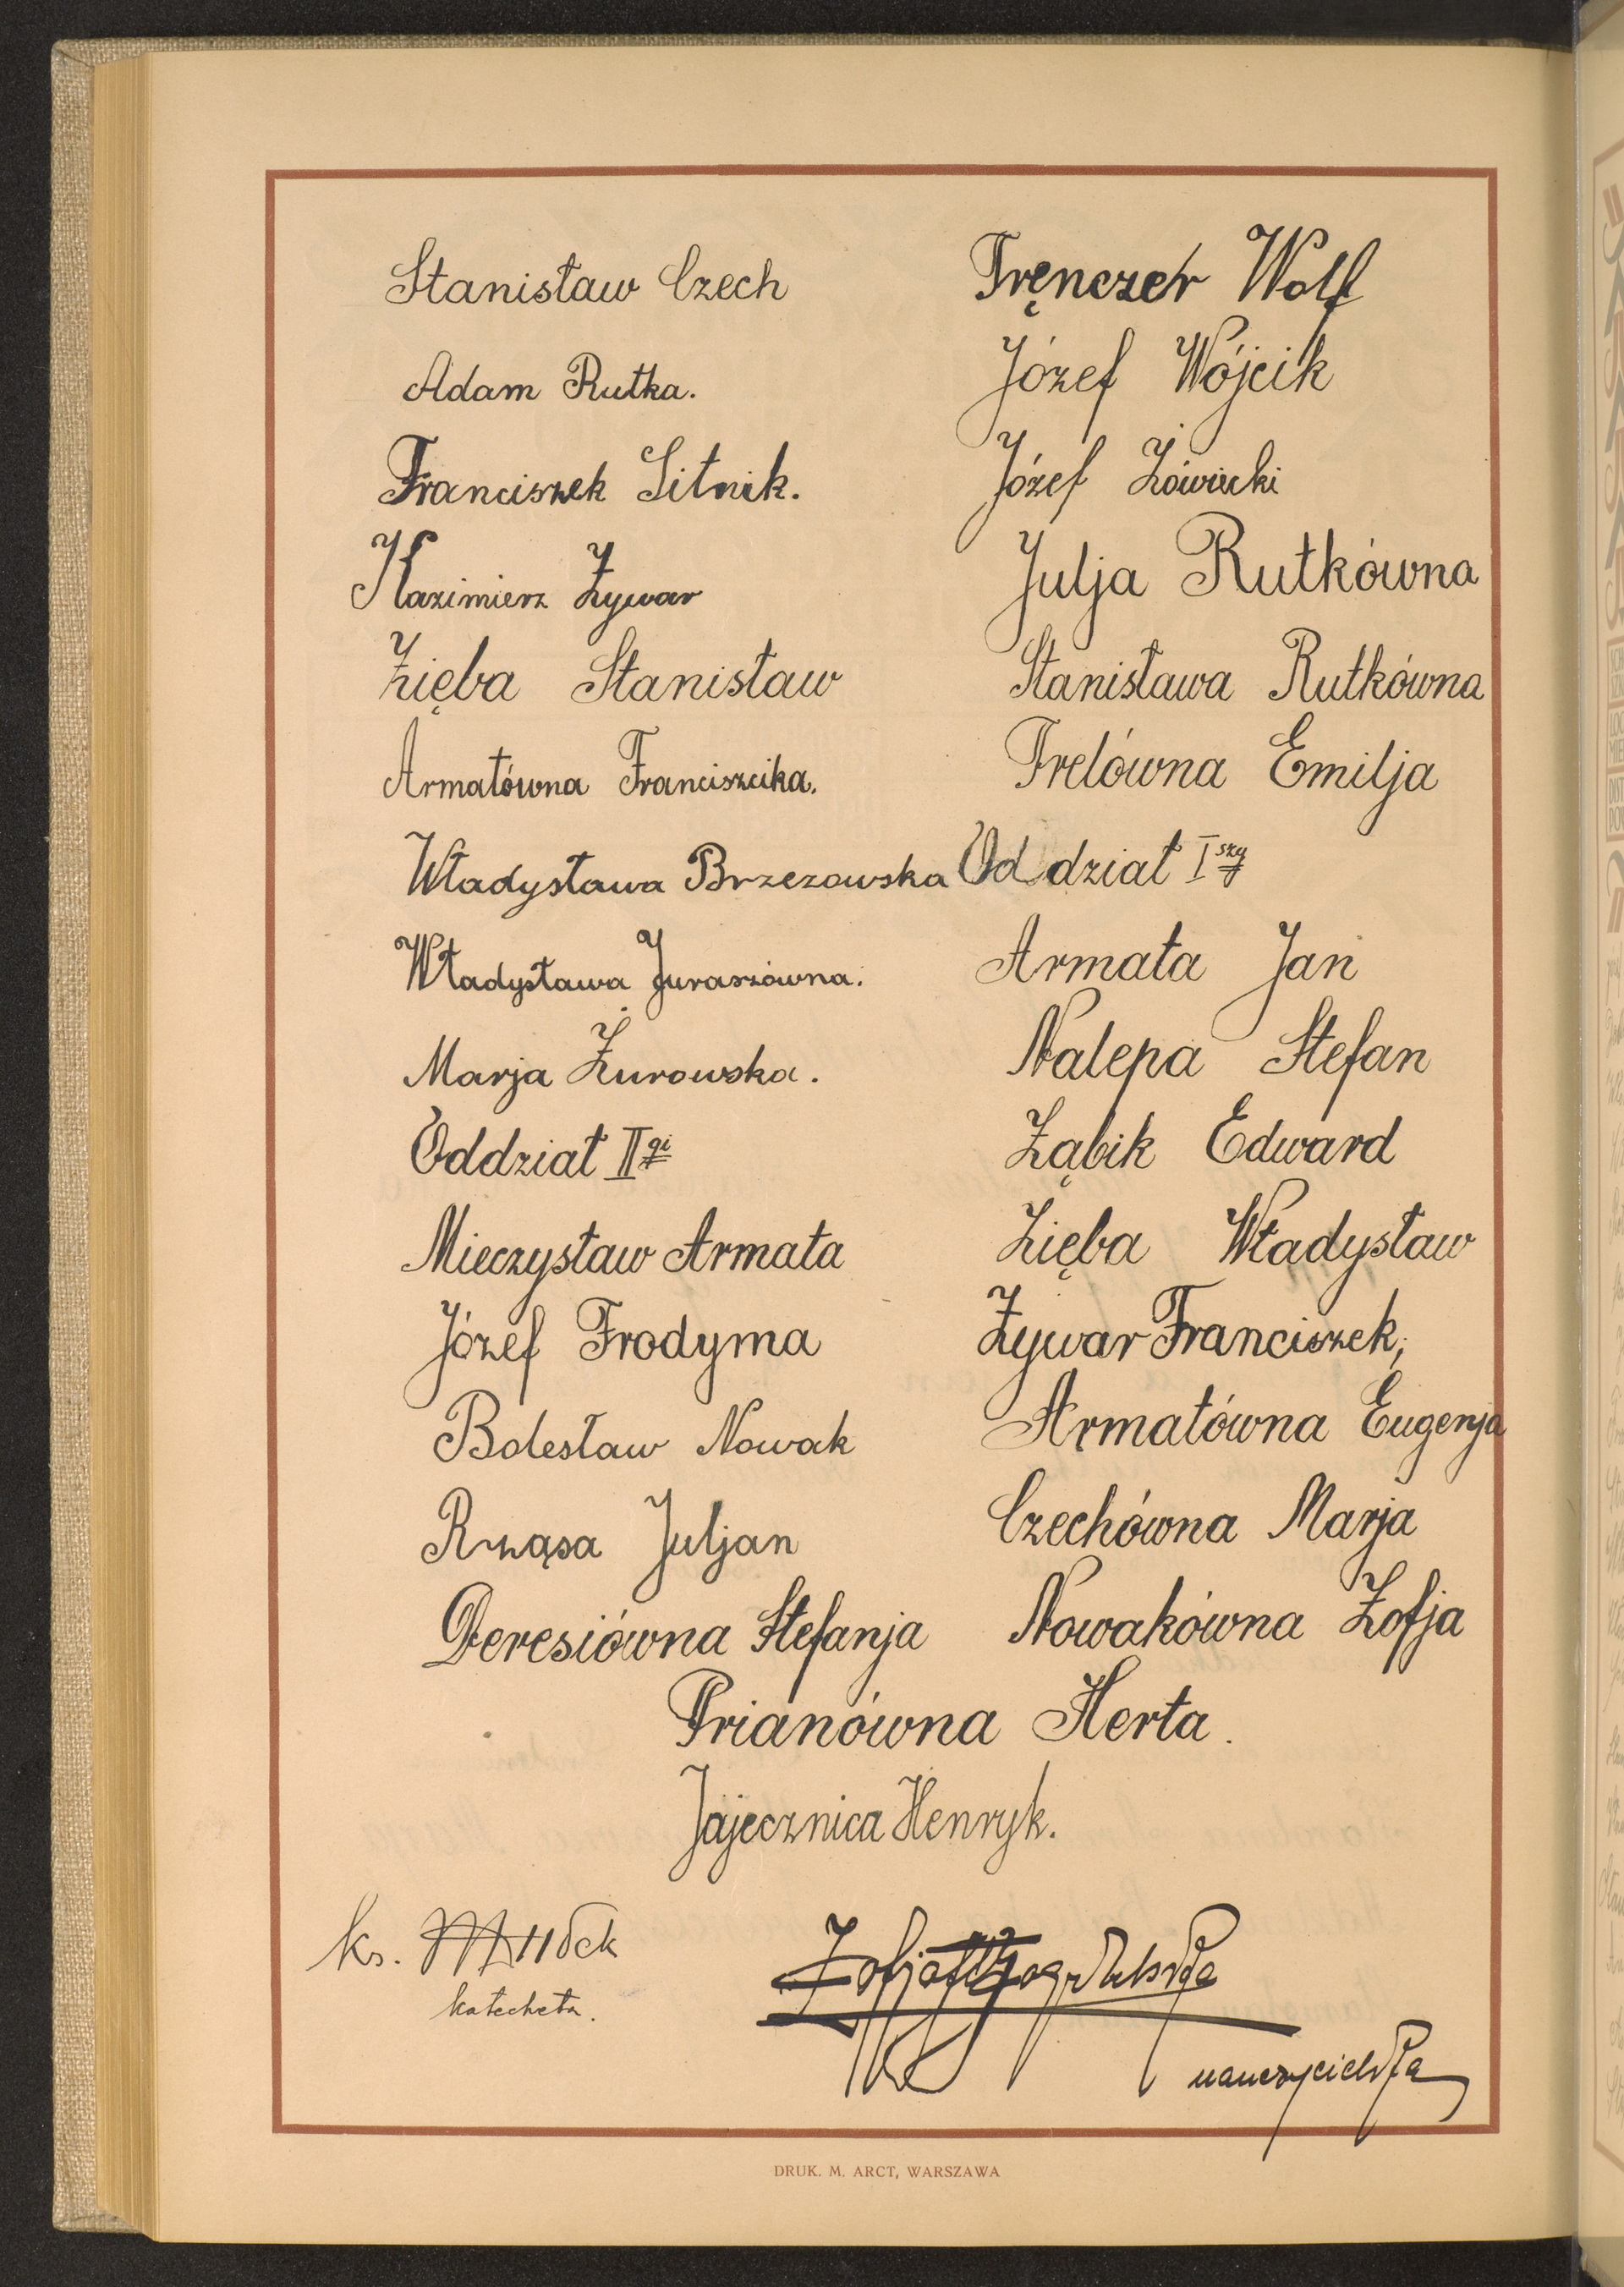 Stanisław Czech
Adam Rutka.
Franciszek Sitnik.
Kazimierz Żywar
Zięba Stanisław
Armatówna Franciszcika.
Władysława Brzezowska
Władysława Juraszówna.
Marja Żurowska.
Oddział II gi
Mieczysław Armata
Józef Frodyma
Bolesław Nowak
Rząsa Juljan
Deresiówna Stefanja
Tręnczer Wolf
Józef Wójcik
Józef Żówicki
Julja Rutkówna
Stanisława Rutkówna
Trelówna Emilja
Oddział I szy
Armata Jan
Nalepa Stefan
Ząbik Edward
Zięba Władysław
Żywar Franciszek,
Armatówna Eugenja
Czechówna Marja
Nowakówna Zofja
Prianówna Herta.
Jajecznica Henryk.
ks.
katecheta.
Zofja
nauczycielka
DRUK. M. ARCT, WARSZAWA